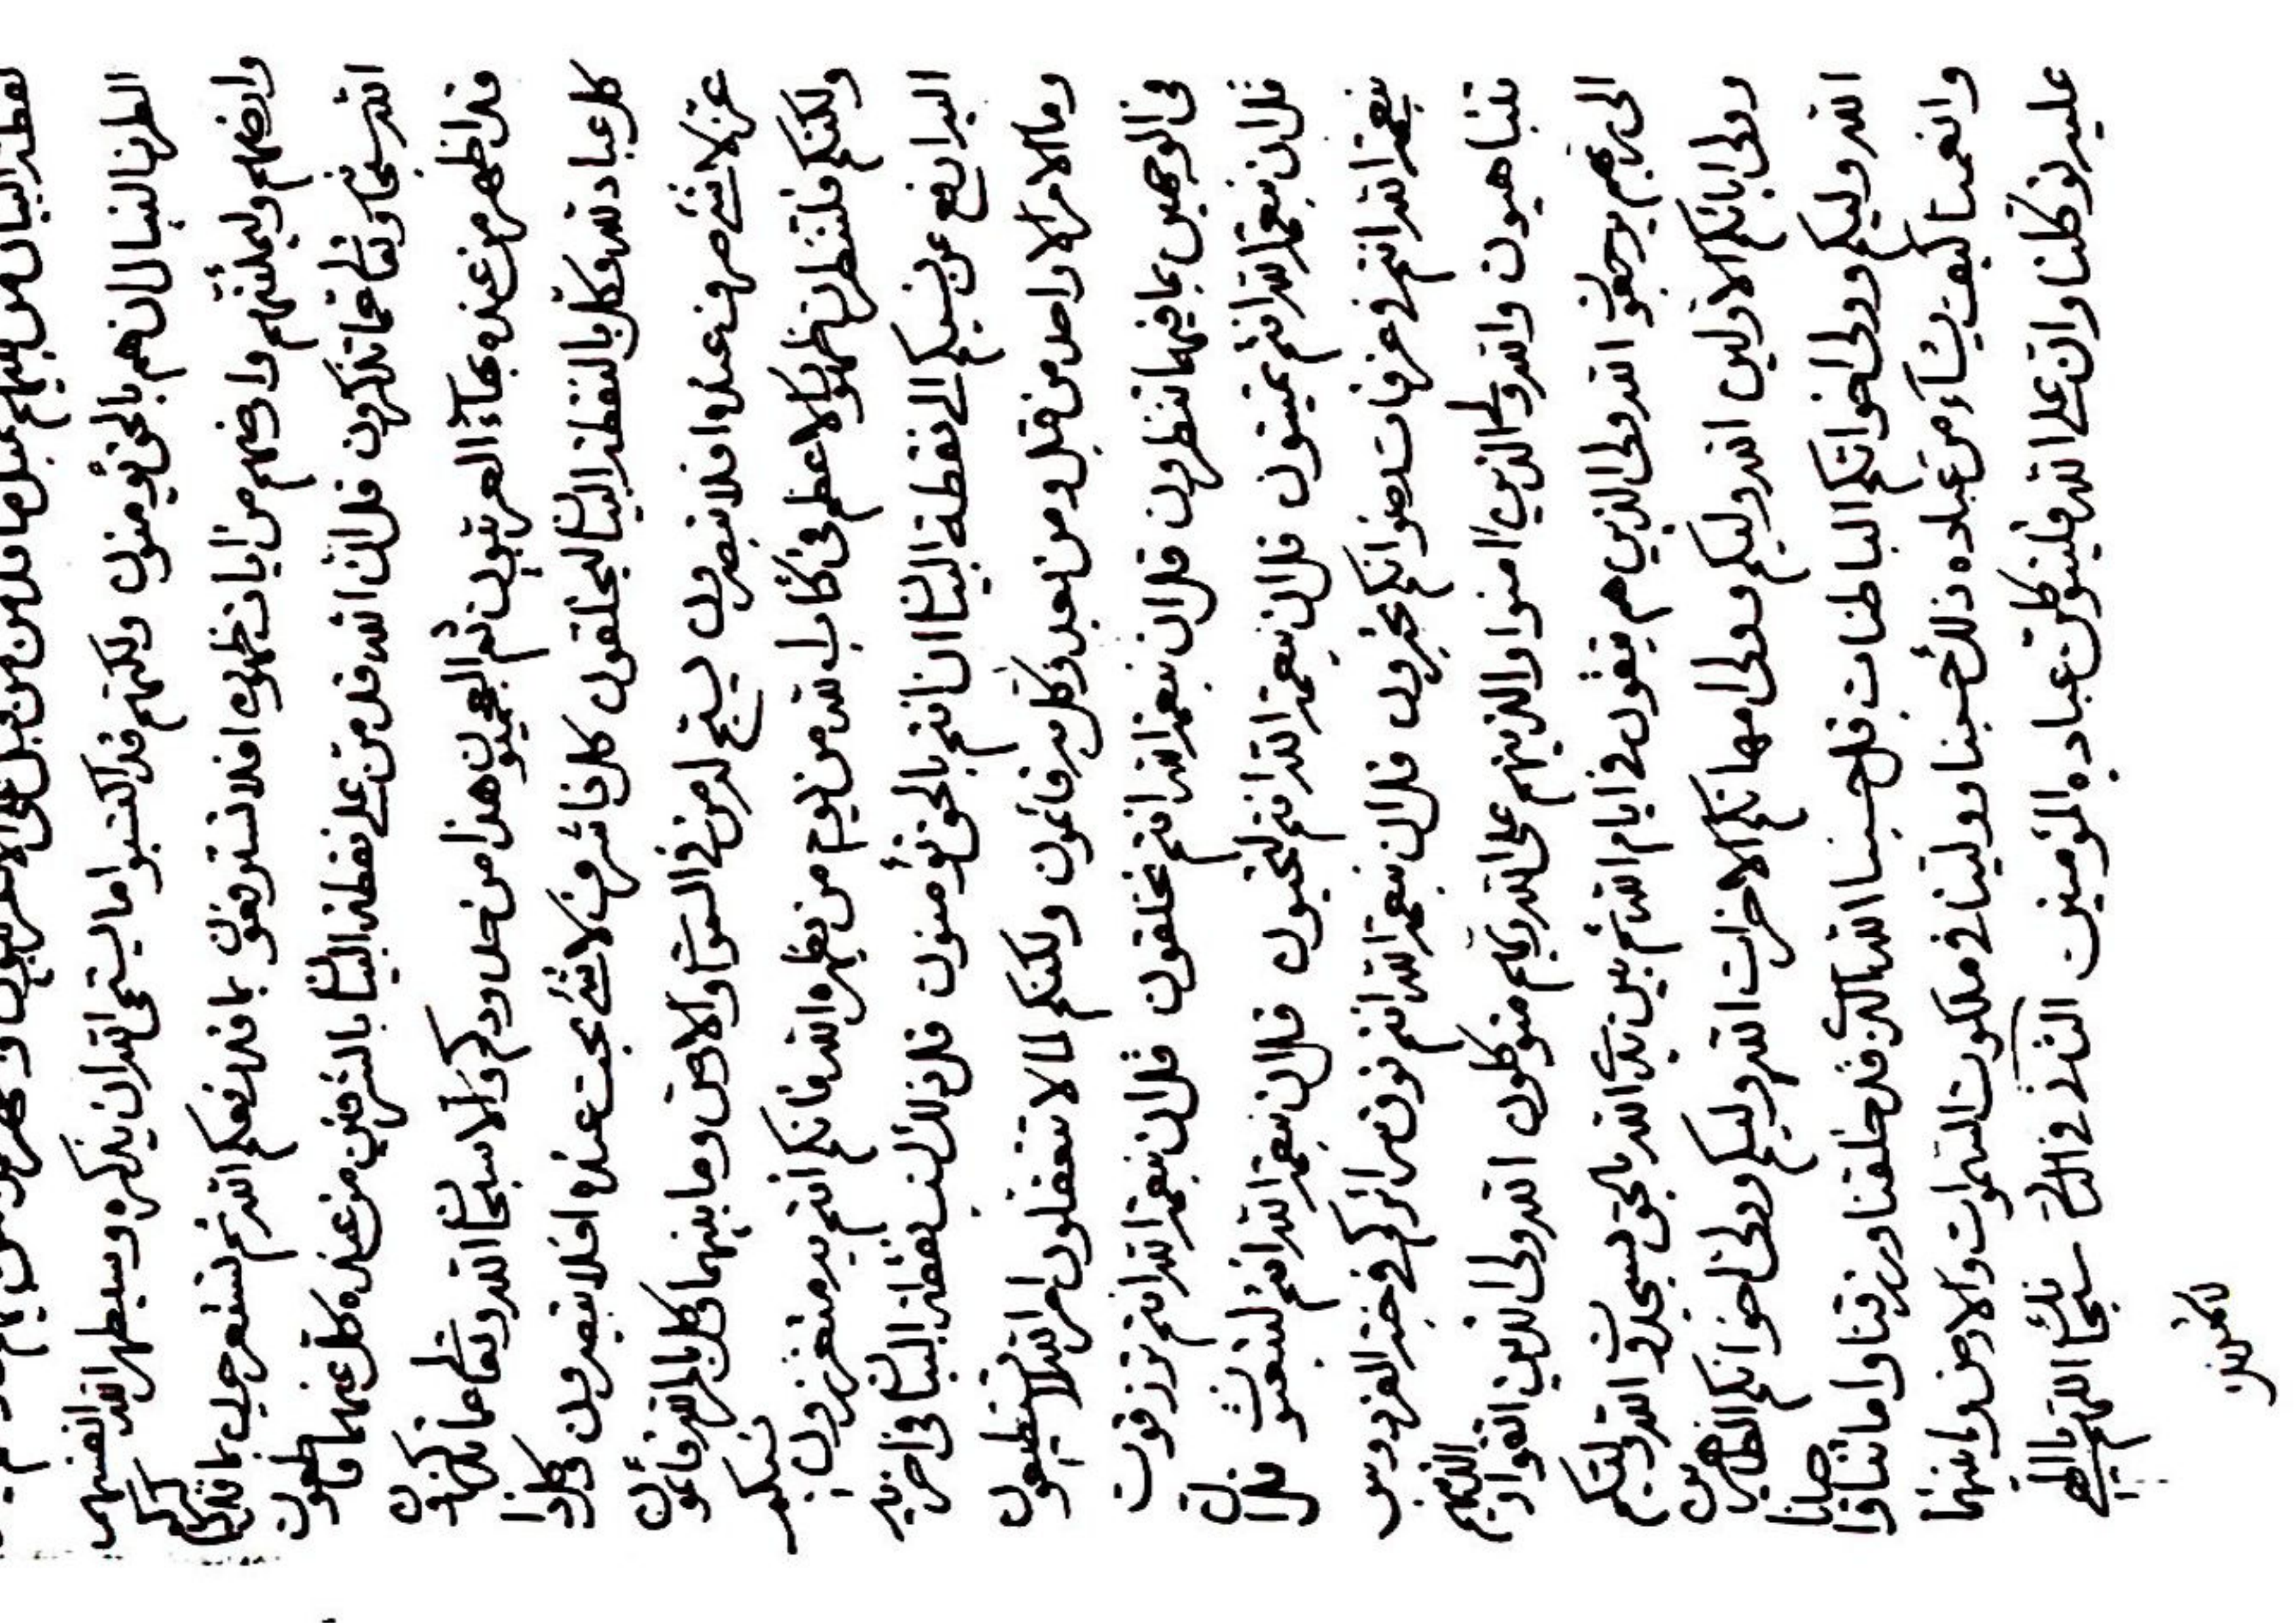 بالحق يؤمنون ولكنهم قد اكتسبوا ما يستحى الله ان يذكره وسيطهر الله انفسهم
من ايات ظهوره افلا تسترفعون بما قد رفعكم الله ثم تستعرجون بما قد
الله سبحانه وتعالى عما تذكرون قل ان الله قد من على نقطة البيان بالشرفين من عنده كل عنهما
قد اظهر من عنده بهاء العربيون ثم العجميون هذا من حدودكم والا سبحان الله وتعالى عما تذكرون
كل عباد له وكل بالنقطة البيان ليخلقون كل لا شئ بحت عنده افلا تبصرون
عز لا شئ صرف عنده افلا تبصرون يسبح له من في السموات والارض وما بينهما وكل بامر الله قائمون
ولكنكم فلتنظرن ظهور الاعظم فى كتاب الله من يوم من يظهره الله فانكم انتم به متعززون نسبكم
اليه ارفع عن نسبكم الى نقطة البيان ان انتم بالحق تؤمنون قل ذلك نسب نقطة البيان فى
وما الامر الا واحد من قبل ومن بعد وكل به قائمون ولكنكم لما لا تتعقلون امر الله لا تستطيعون
فى الوجهين بما فيهما تنظرون قل ان بنعمة الله انتم تخلقون قل ان بنعمة الله انتم ترزقون
قل ان بنعمة الله انتم تميتون قل ان بنعمة الله انتم لتحيون قل ان بنعمة الله انتم لتبعثون قل ان
بنعمة الله انتم فى غرفات رضوانكم تحبرون قل ان بنعمة الله انتم فوق سرائركم فى جنة الفردوس
تتباهيون والله ولى الذين امنوا والذينهم على الله ربهم متوكلون الله ولى الذين اتقوا ربهم الذينهم
الى ربهم يرجعون الله ولى الذين هم يتقون فى ايام الله ثم بين يدى الله بالحق يسجدون الله وليكم
وولى ابائكم الاولين الله وليكم وولى امهاتكم الاخرات الله وليكم وولى اخوانكم الظاهرين
الله وليكم وولى اخواتكم الباطنات قل حسبنا الله الذى قد خلقنا ورزقنا واماتنا واحيانا
وانعمنا كيف يشاء من عباده ذلك حسبنا وولينا فى ملكوت السموات والارض وما بينهما
عليه توكلنا وان على الله فليتوكلن عباده المؤمنين الثالث فى الثالث سبحانك اللهم يا الهى
لاشهدنك